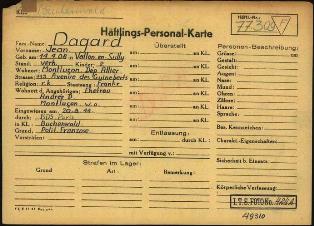 Buchenwald
Häftl.-Nr.:
77309
Häftlings-Personal-Karte
Fam.-Name: Dagard
Vorname: Jean
Geb. am 11.9.08 in Vallon en Sully
Stand: verh. Kinder: 2
Wohnort: Montluçon Dep. Allier
Strasse: Avenue des Guineberts
Religion: r.k. Staatsang.: Franke
Wohnort d. Angehörigen: Ehefrau
Andrée D.
Montluçon w.o.
Eingewiesen am: 20.8.44
durch: BDS Paris
in KL.: Buchenwald
Grund: Polit. Franzose
Vorstrafen:
Überstellt
am: an KL.
am: an KL.
am: an KL.
am: an KL.
am: an KL.
am: an KL.
Entlassung:
am: durch KL.:
mit Verfügung v.:
Personen-Beschreibung:
Grösse:
Gestalt:
Gesicht:
Augen:
Nase:
Mund:
Ohren:
Zähne:
Haare:
Sprache:
Bes. Kennzeichen:
Charakt.-Eigenschaften:
Sicherheit b. Einsatz:
Körperliche Verfassung:
Strafen im Lager:
Grund: Art: Bemerkung:
I.T.S. FOTO No.
49310